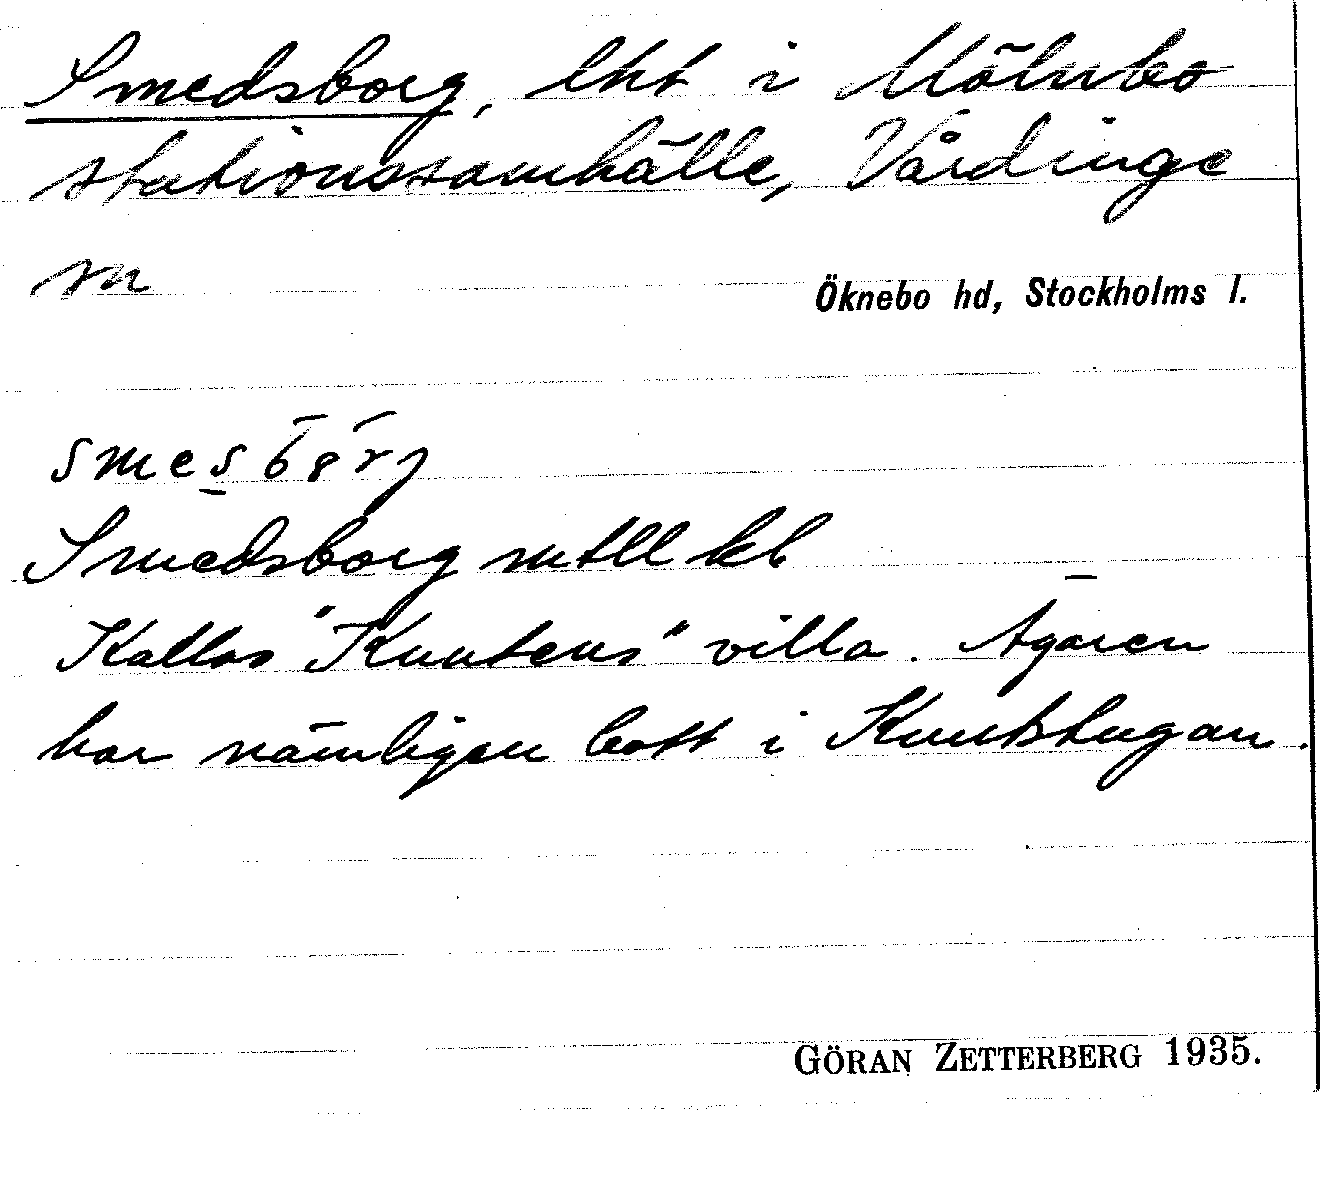 Smedsborg, lht i Mölnbo
stationssamhälle, Vårdinge
sn
Öknebo hd, Stockholms l.
Smedsborg mtll kb
Kallas "Knutens" villa. Ägaren
har nämligen bott i Knutstugan.
GÖRAN ZETTERBERG 1935.